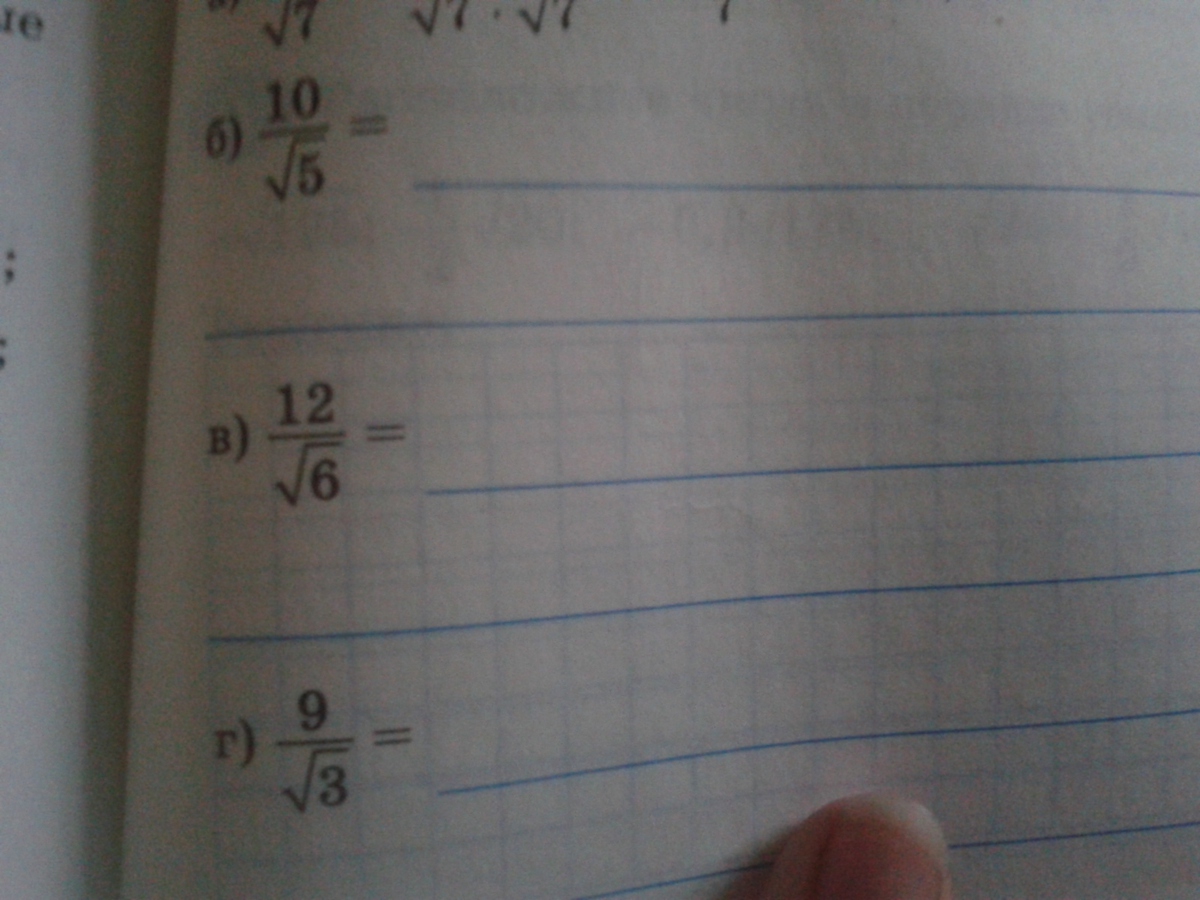 ые
√7 √7 · √7 7
б) 10/√5 =
;
;
в) 12/√6 =
г) 9/√3 =